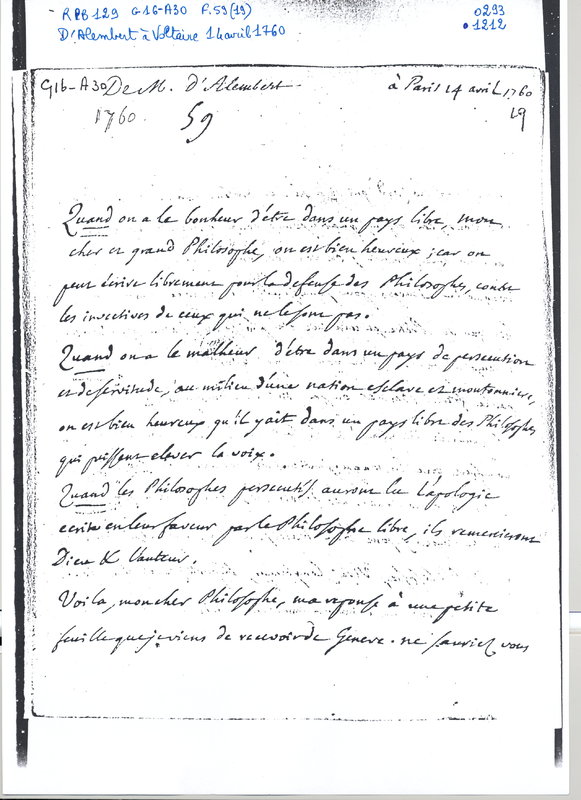 RPB 129 G16-A30 F.59(19) 0293
D'Alembert à Voltaire 14 avril 1760 •1212
G16-A30 De M. d'Alembert à Paris 14 avril 1760
1760 59 19
Quand on a le bonheur d'être dans un pays libre, mon
cher et grand Philosophe, on est bien heureux ; car on
peut écrire librement pour la defense des Philosophes, contre
les invectives de ceux qui ne le sont pas.
Quand on a le malheur d'être dans un pays de persecution
et de servitude, au milieu d'une nation esclave et moutonniere,
on est bien heureux qu'il y ait dans un pays libre des Philosophes
qui puissent elever la voix.
Quand les Philosophes persecutés auront lu l'apologie
ecrite en leur faveur par le Philosophe libre, ils remercieront
Dieu & l'auteur.
Voila, mon cher Philosophe, ma reponse à une petite
feuille que je viens de recevoir de Geneve. ne sauriez vous